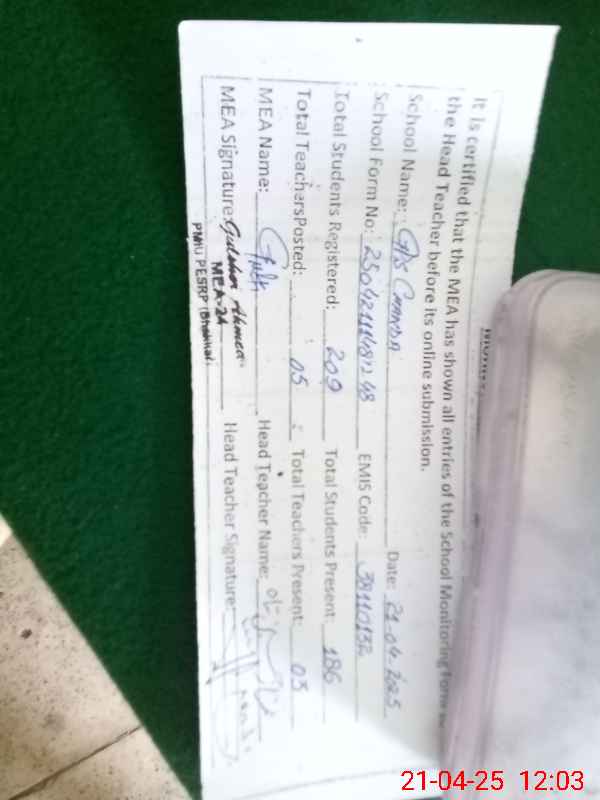 It is certified that the MEA has shown all entries of the School Monitoring Form
the Head Teacher before its online submission.
School Name: G/S CHANDA Date: 21-04-2025
School Form No: EMIS Code: 38110132
Total Students Registered: 209 Total Students Present: 186
Total TeachersPosted: 05 Total Teachers Present: 03
MEA Name: Head Teacher Name:
MEA Signature: Head Teacher Signature:
MEA-24
PMIU PESRP (Bhakkar)
21-04-25 12:03